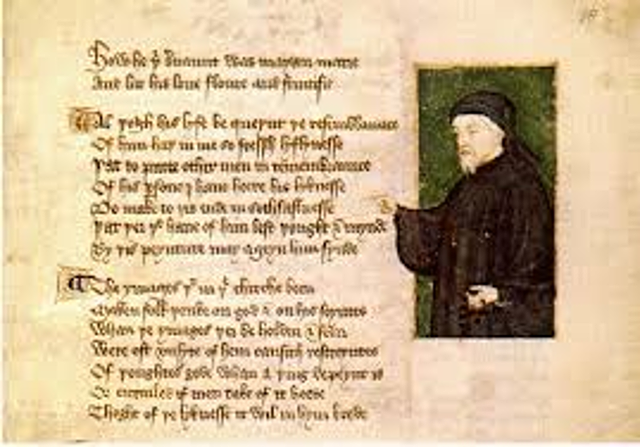 How he þͥ seruaunt was mayden marie
And lat his loue floure and fructifie
Al þogh his lyfe be queynt þe resemblaunce
Of him haþ in me so fressh lyflynesse
Þat to putte othir men in remembraunce
Of his ꝑsone I haue heere his lyknesse
Do make to þis ende in sothfastnesse
Þat þei þͭ haue of him lest þought & mynde
By þis peynture may ageyn him fynde
The ymages þͭ in þͤ chirche been
Maken folk þenke on god & on his seyntes
Whan þe ymages þei be holden & seen
Were oft vnsyte of hem causith restreyntes
Of þoughtes gode whan a þing depeynt is
Or entailed if men take of it heede
Thoght of þe lyknesse it wil in hym brede